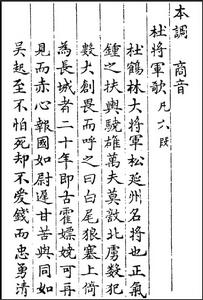 本調 商音
杜將軍歌 凡六段
杜鶴林大將軍松延州名將也正氣
鍾之扶輿驍雄萬夫莫敵北虜數犯
數大創畏而呼之曰白尾狼塞上倚
為長城者二十年即古霍嫖姚可再
見而赤心報國如尉遲甘苦與同如
吳起至不怕死却不愛錢而忠勇清